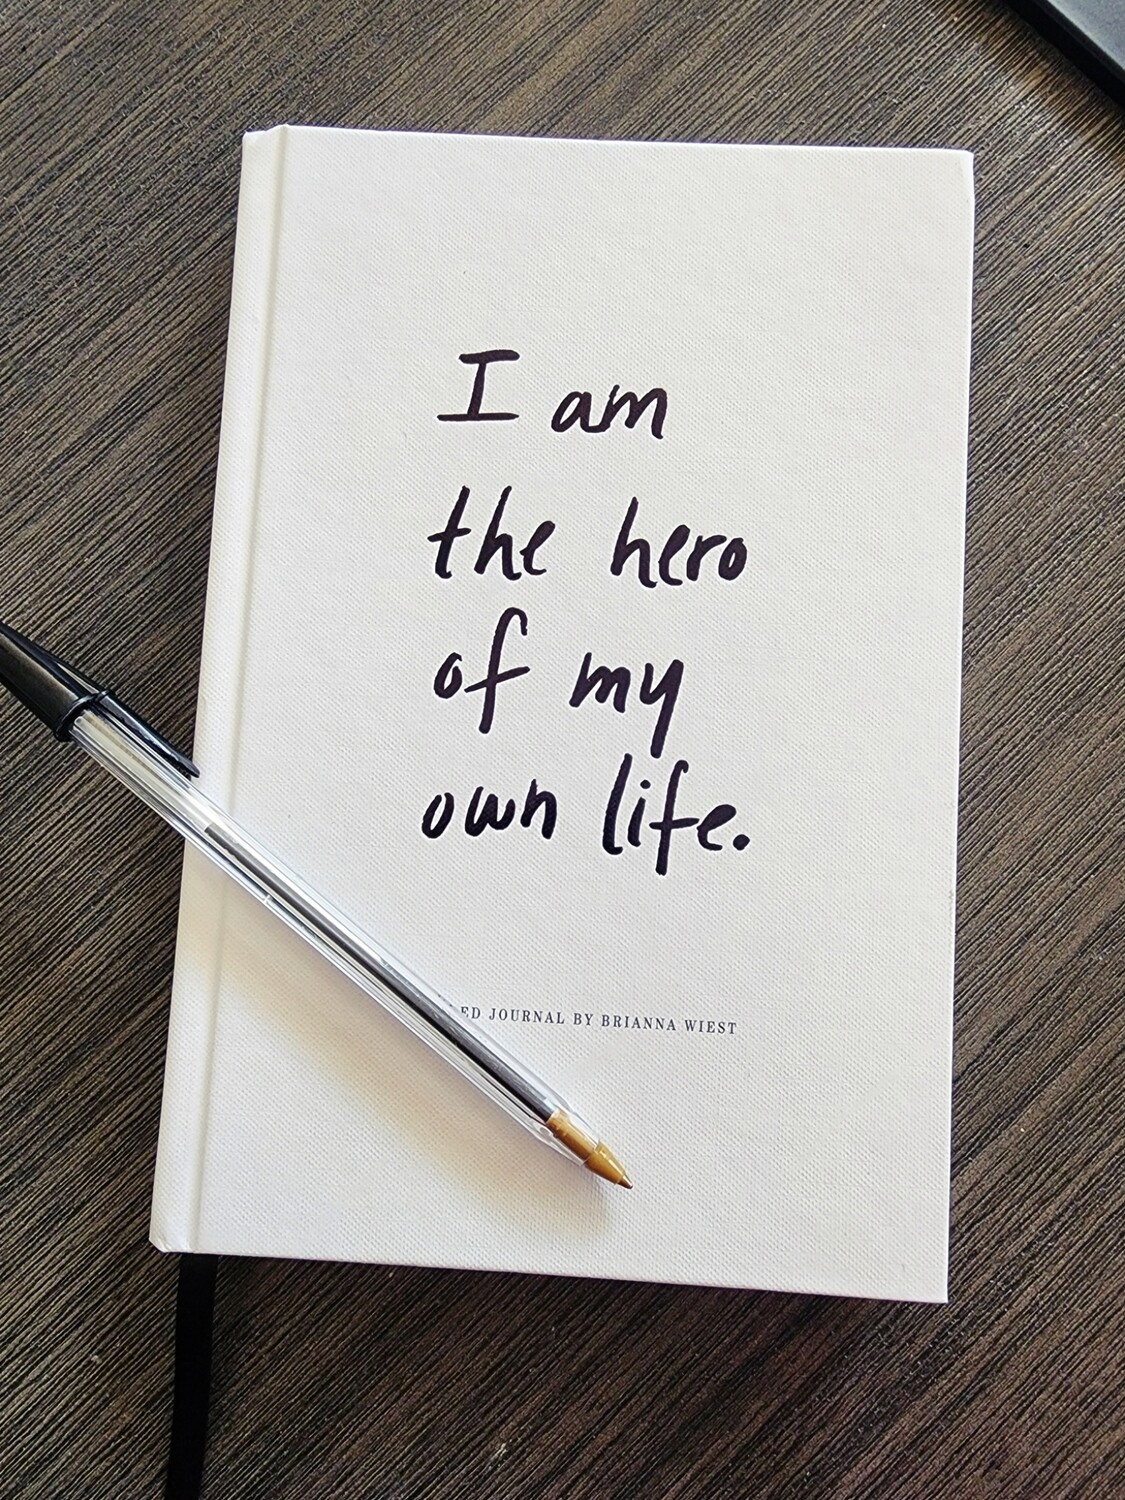 I am
the hero
of my
own life.
JOURNAL BY BRIANNA WIEST